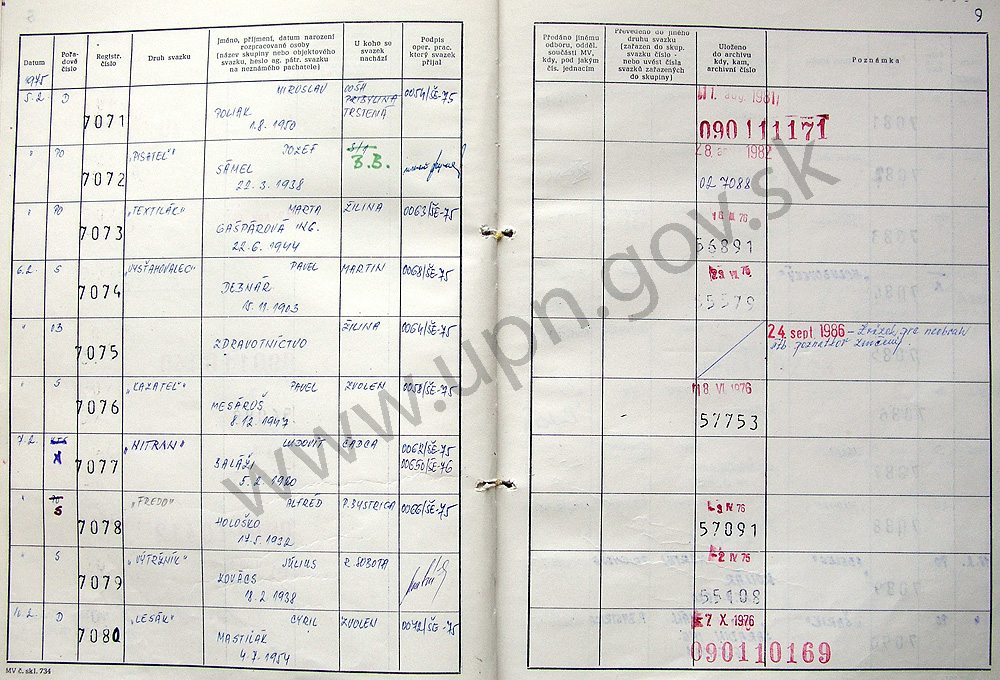 9
Datum
Pořadové číslo
Registr. číslo
Druh svazku
Jméno, příjmení, datum narození rozpracované osoby (název skupiny nebo objektového svazku, heslo ag. pátr. svazku na neznámého pachatele)
U koho se svazek nachází
Podpis oper. prac. který svazek přijal
Předáno jinému odboru, odděl. součásti MV, kdy, pod jakým čís. jednacím
Převedeno do jiného druhu svazku (zařazen do skup. svazku číslo - nebo uvést čísla svazků zařazených do skupiny)
Uloženo do archivu kdy, kam, archivní číslo
Poznámka
1975
5.2. D 7071 MIROSLAV POLIAK 1.8. 1950 OOŠH PRIBYLINA TRSTENÁ 0054/ŠE-75 1981 090111171
" PO 7072 „PISATEĽ" JOZEF SÁMEL 22.3. 1938 B.B. 1982 02 7088
" PO 7073 „TEXTILÁK" MARTA GAŠPÁROVÁ ING. 22.6. 1944 ŽILINA 0063/ŠE-75 18 III. 76 56891
6.2. S 7074 „VYSŤAHOVALEC" PAVEL DEBNÁR 15.11. 1903 MARTIN 0068/ŠE-75 VI. 75 55579
" OB 7075 ZDRAVOTNÍCTVO ŽILINA 0064/ŠE-75 24. sept. 1986 – poznatkov zničený
" S 7076 „KAZATEĽ" PAVEL MESÁROŠ 8.12. 1947 ZVOLEN 0058/ŠE-75 18 VI. 1976 57753
7.2. A 7077 „NITRAN" ĽUDOVÍT BALÁŽI 5.2. 1920 ČADCA 0062/ŠE-75 00650/ŠE-76
" S 7078 „FREDO" ALFRÉD HOLOŠKO 17.5. 1932 P. BYSTRICA 0066/ŠE-75 3 IV 76 57091
" S 7079 „VÝTRŽNÍK" JÚLIUS KOVÁCS 18.2. 1938 R. SOBOTA 2 IV 75 55108
10.2. D 7080 „LESÁK" CYRIL MASTILÁK 4.7. 1954 ZVOLEN 0072/ŠE-75 7 X. 1976 090110169
MV č. skl. 734
www.upn.gov.sk